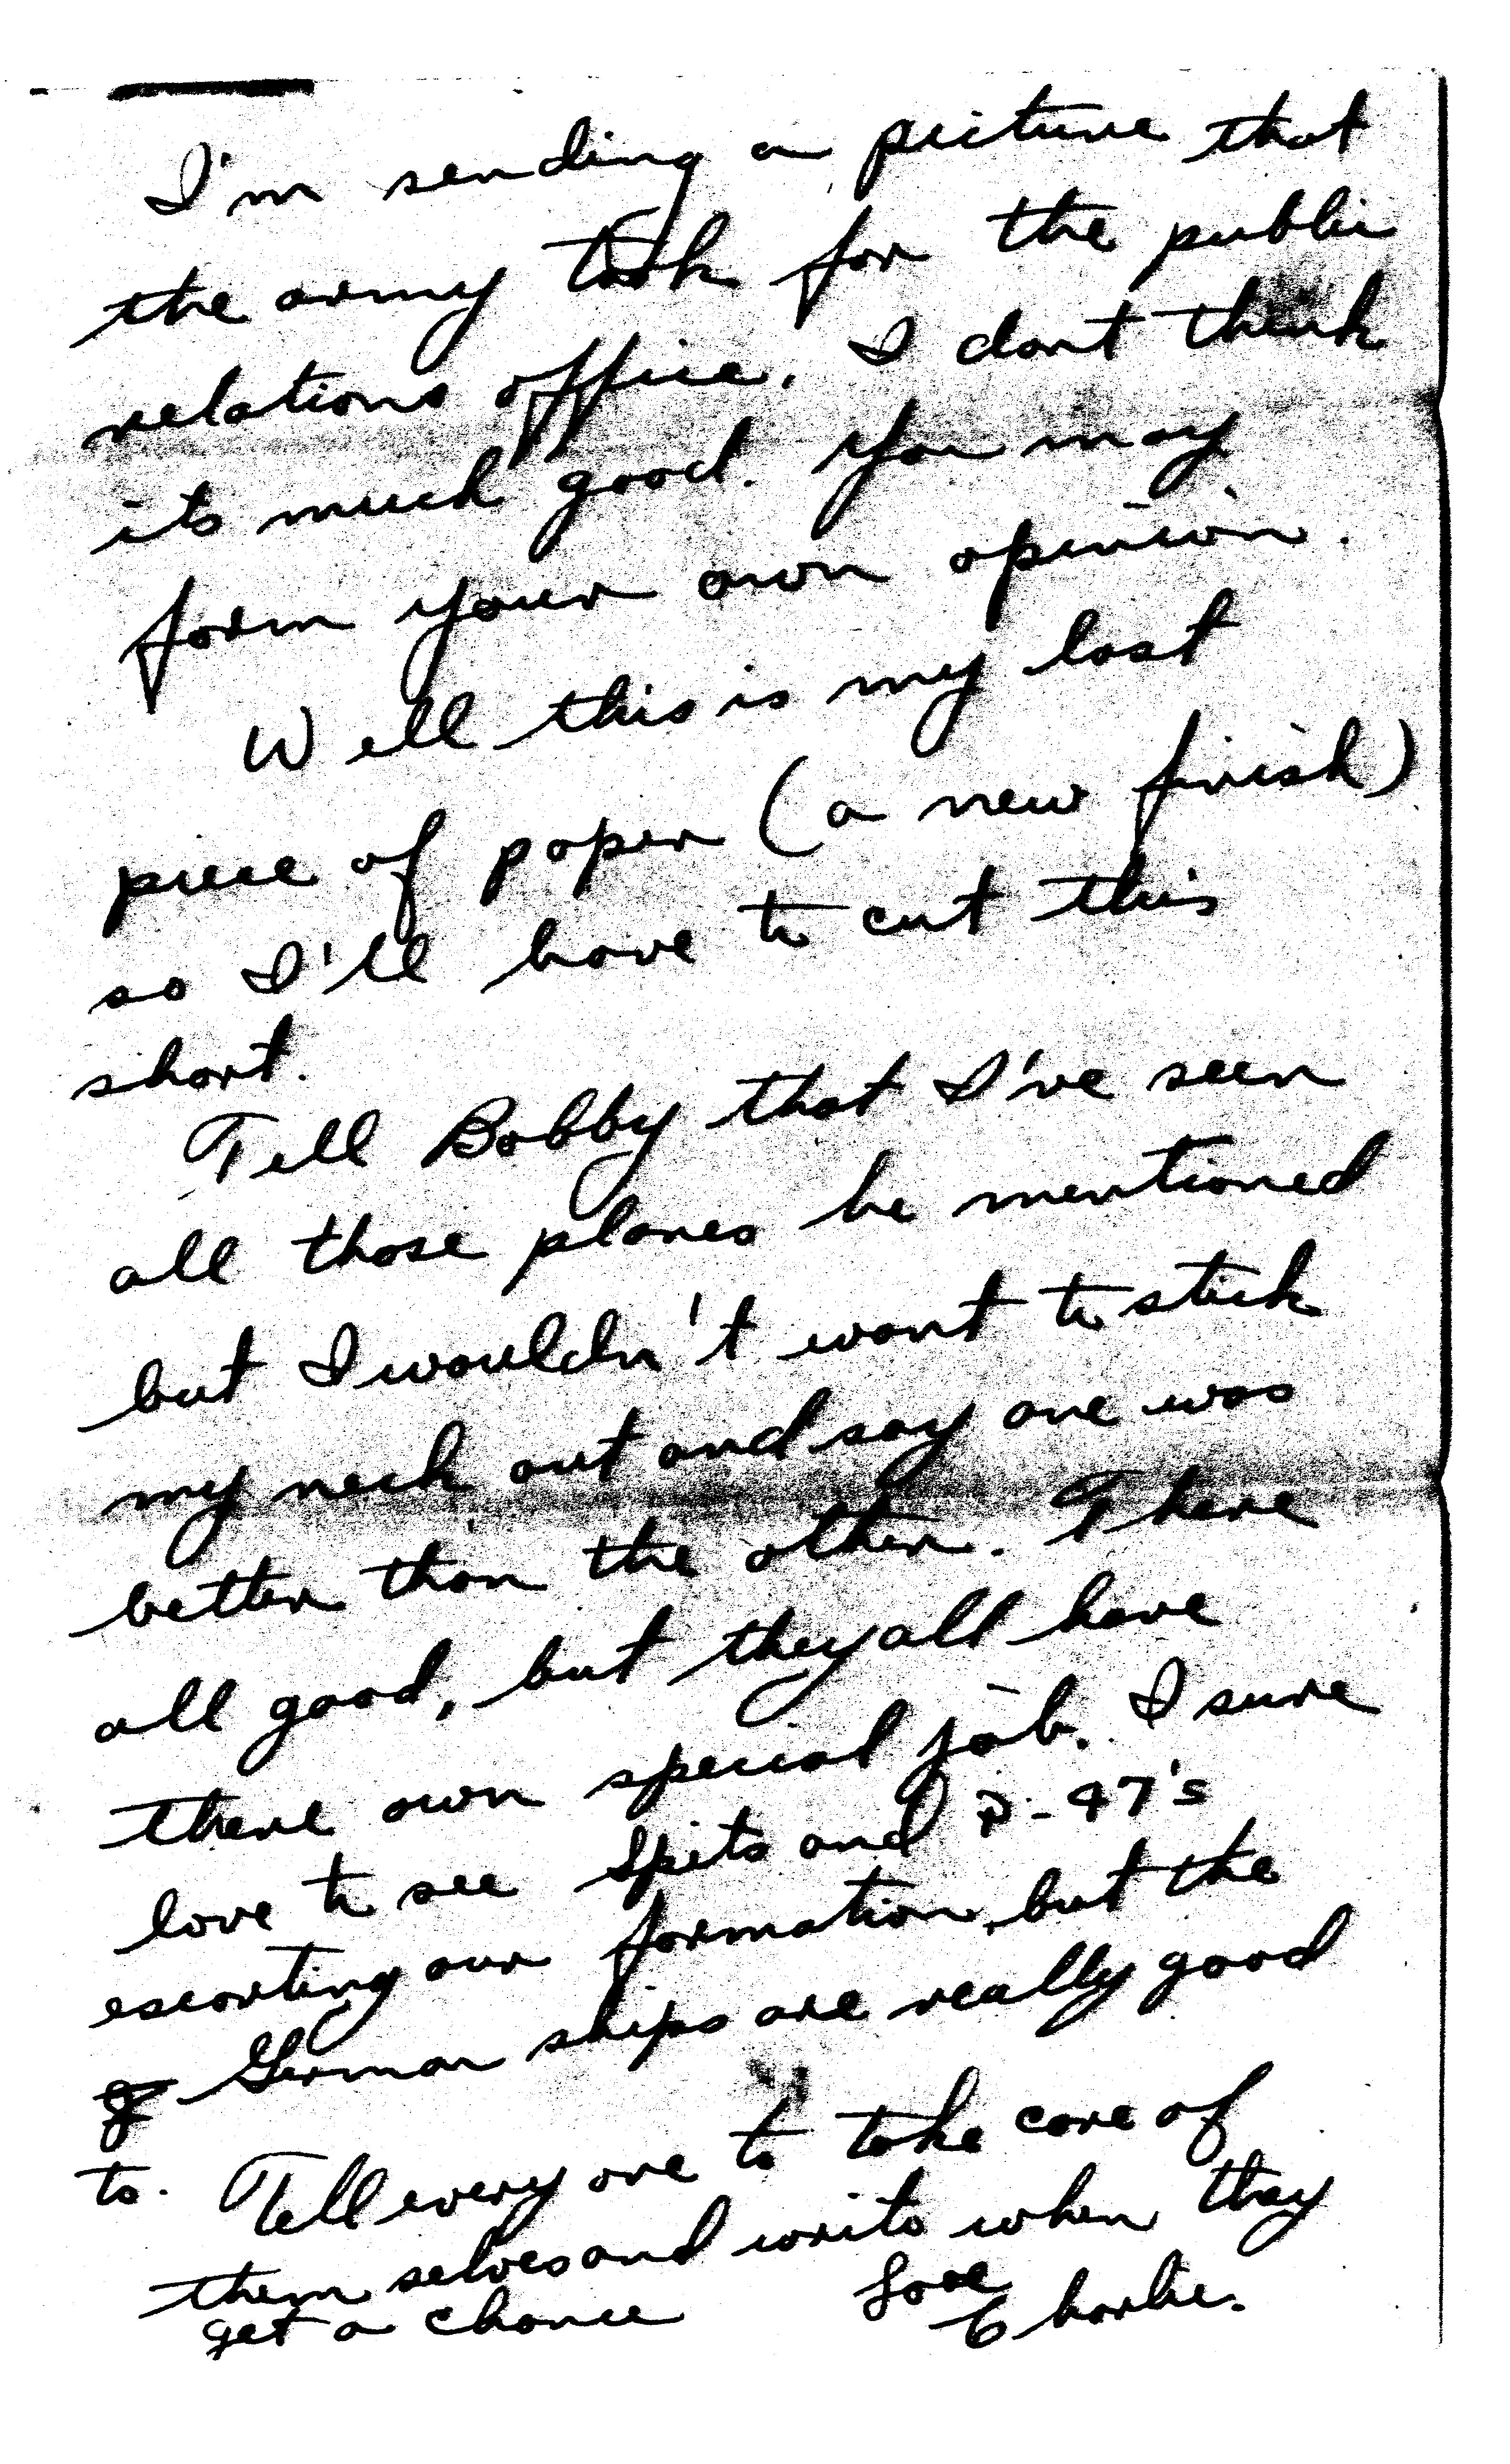 I'm sending a picture that
the army took for the public
relations office. I dont think
its much good. You may
form your own opinion.
Well this is my last
piece of paper (a new finish)
so I'll have to cut this
short.
Tell Bobby that I've seen
all those planes he mentioned
but I wouldn't want to stick
my neck out and say one was
better than the other. There
all good, but they all have
there own special job. I sure
love to see Spits and P-47's
escorting our formation, but the
g German ships are really good
to. Tell every one to take care of
them selves and write when they
get a chance Love
Charlie.